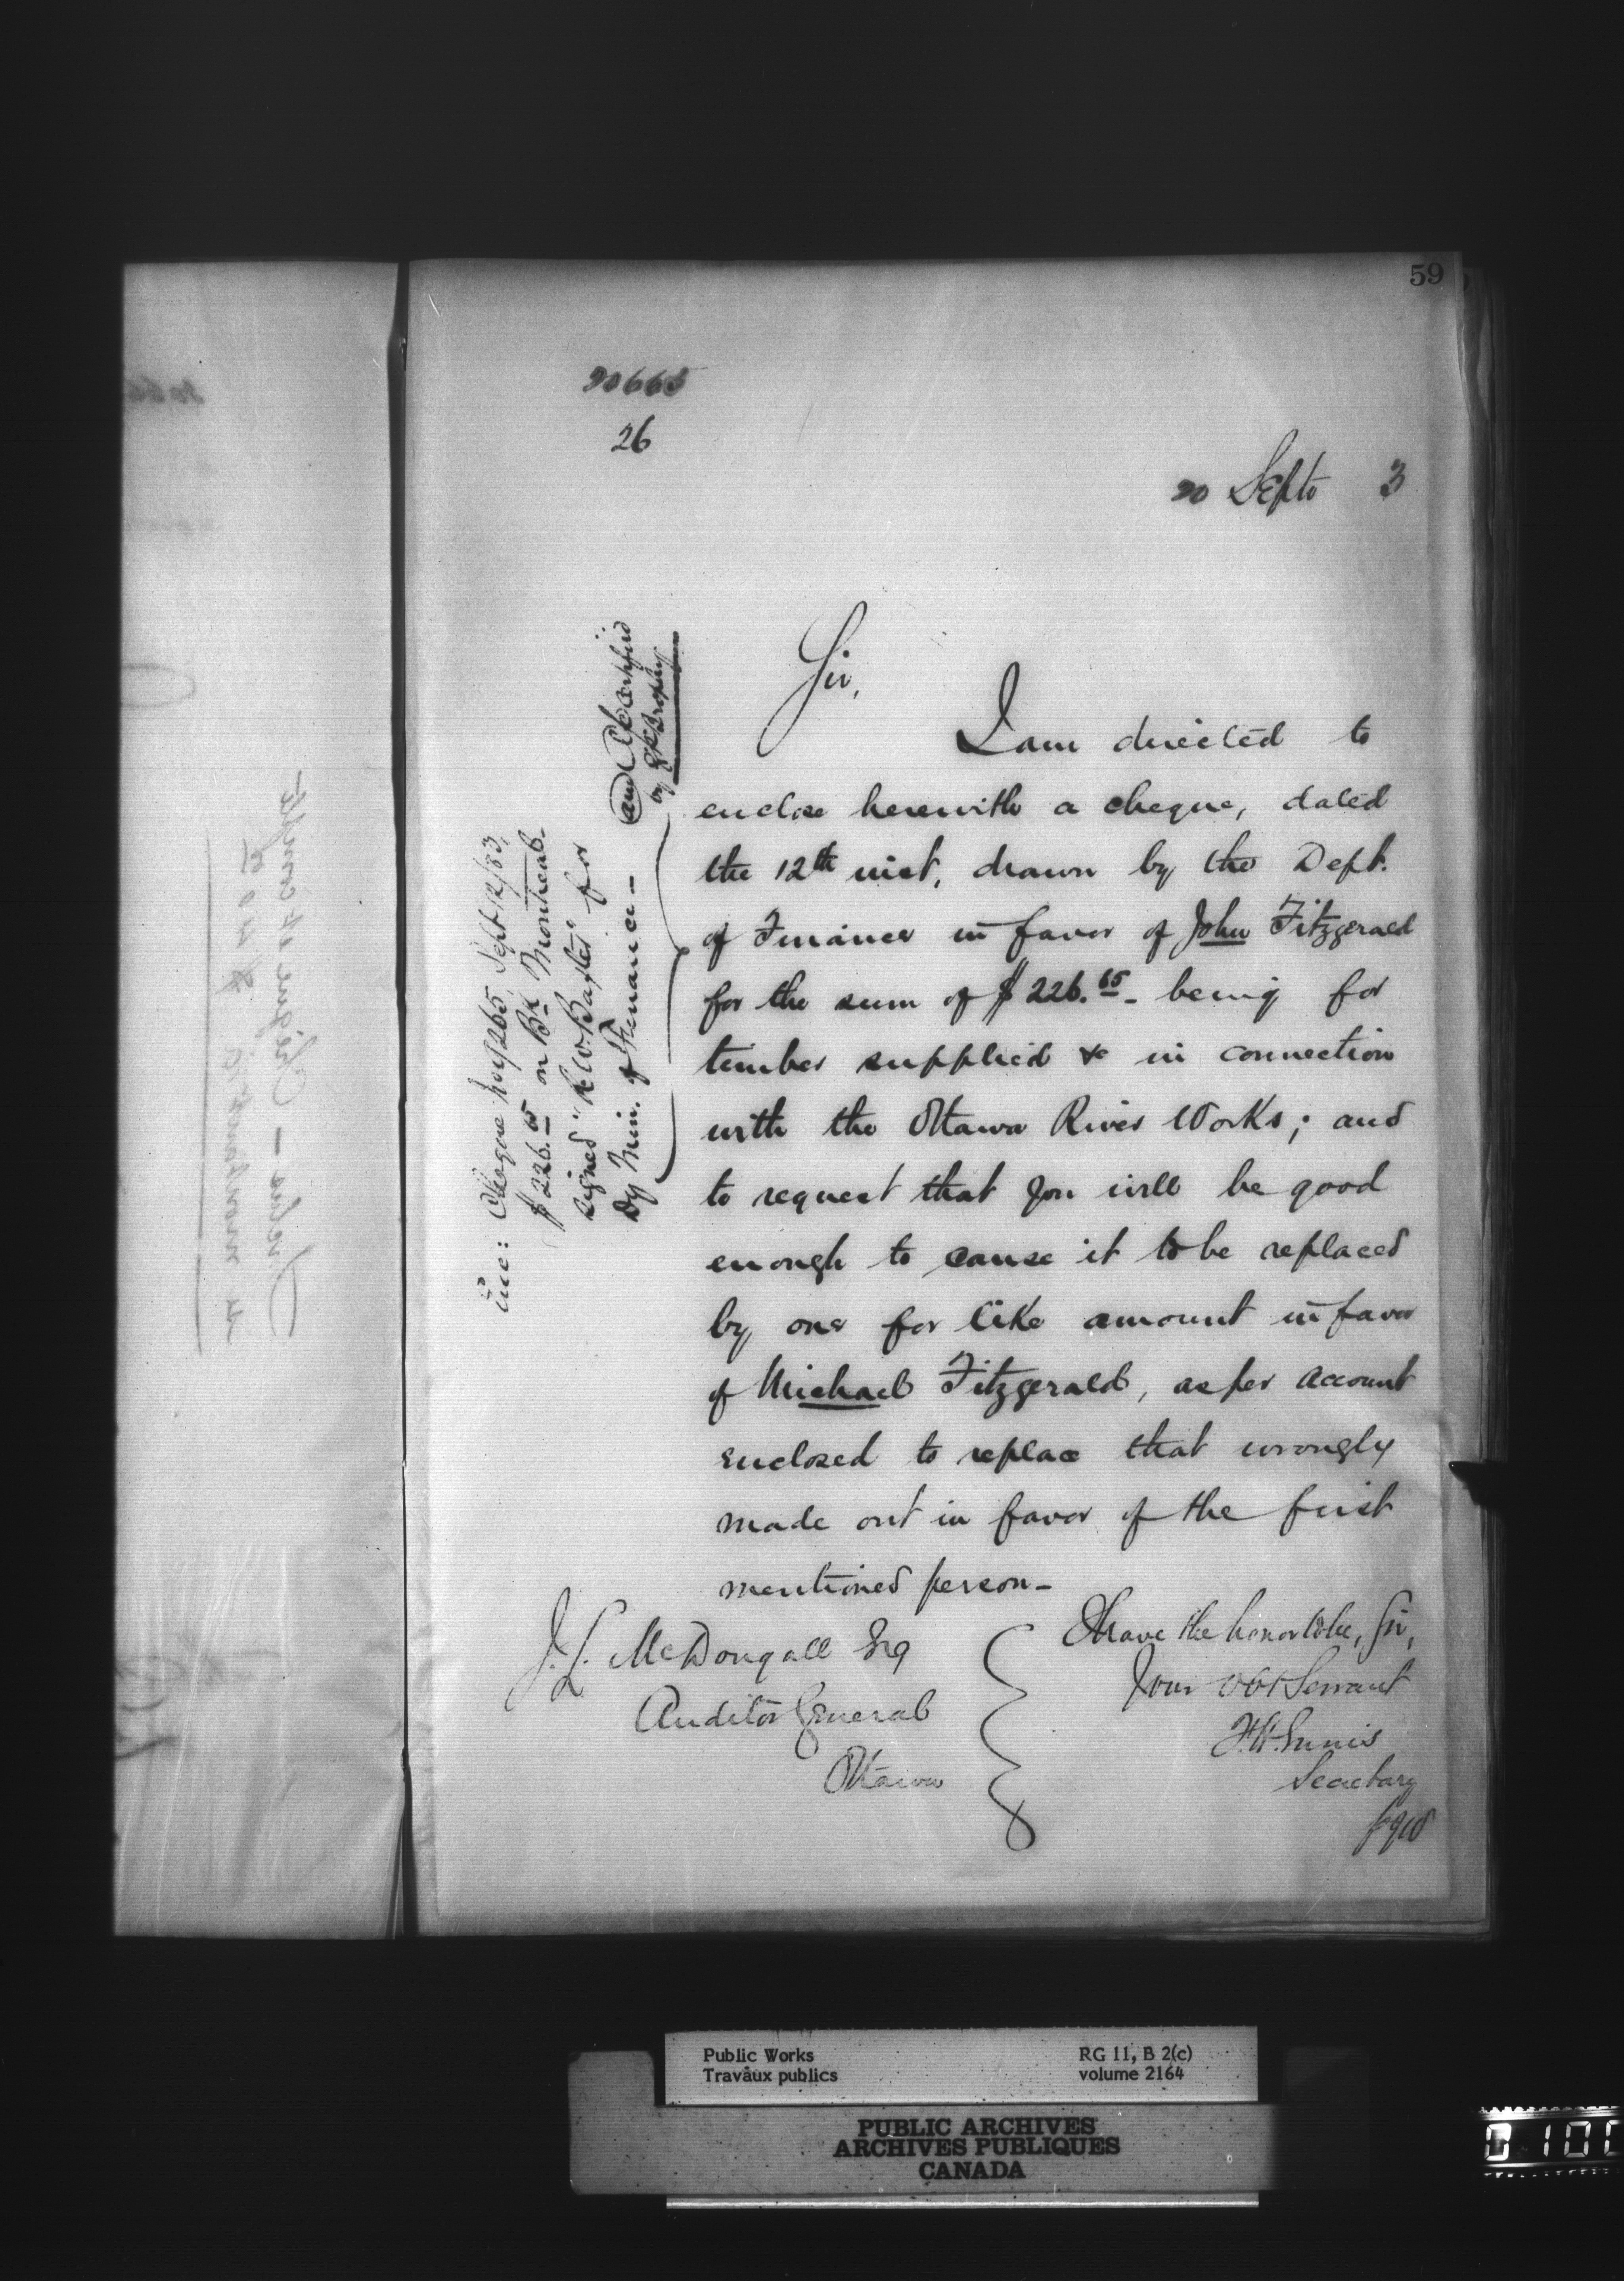 59
20665
26
20 Septr 3
Sir,
I am directed to
enclose herewith a cheque, dated
the 12th inst, drawn by the Dept.
of Finance in favor of John Fitzgerald
for the sum of $226.65 - being for
timber supplied &c in connection
with the Ottawa River Works; and
to request that you will be good
enough to cause it to be replaced
by one for like amount in favor
of Michael Fitzgerald, as per account
enclosed to replace that wrongly
made out in favor of the first
mentioned person -
I have the honor to be, Sir,
Your Obt Servant
F.H. Ennis
Secretary
J. L. McDougall Esq
Auditor General
Ottawa
inc: Cheque No 9265, Sept 12/83,
$226.65 on Bk Montreal -
signed "R.W. Baxter" for
Dy Min. of Finance -
and Certified
by
Public Works
Travaux publics
RG 11, B 2(c)
volume 2164
PUBLIC ARCHIVES
ARCHIVES PUBLIQUES
CANADA